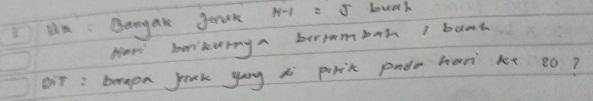 Dik : Banyak jeruk H-1 = 5 buah
Hari berikutnya bertambah 1 buah
DIT : berapa jeruk yang di petik pada hari ke 20 ?